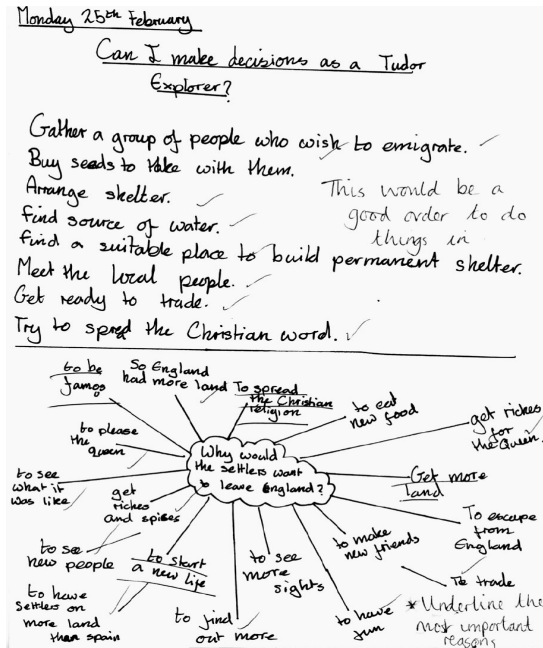 Monday 25th February
Can I make decisions as a Tudor
Explorer?
Gather a group of people who wish to emigrate.
Buy seeds to take with them.
Arrange shelter.
find source of water.
find a suitable place to build permanent shelter.
Meet the local people.
Get ready to trade.
Try to spred the Christian word.
This would be a
good order to do
things in
Why would
the settlers want
to leave England?
to be
famos
So England
had more land
To spread
the Christian
religion
to eat
new food
get riches
for
the Queen
Get more
land
To escape
from
England
To trade
to make
new friends
to have
fun
to see
more
sights
to find
out more
to start
a new life
to have
settlers on
more land
than spain
to see
new people
get
riches
and spices
to see
what it
was like
to please
the
queen
* Underline the
most important
reasons